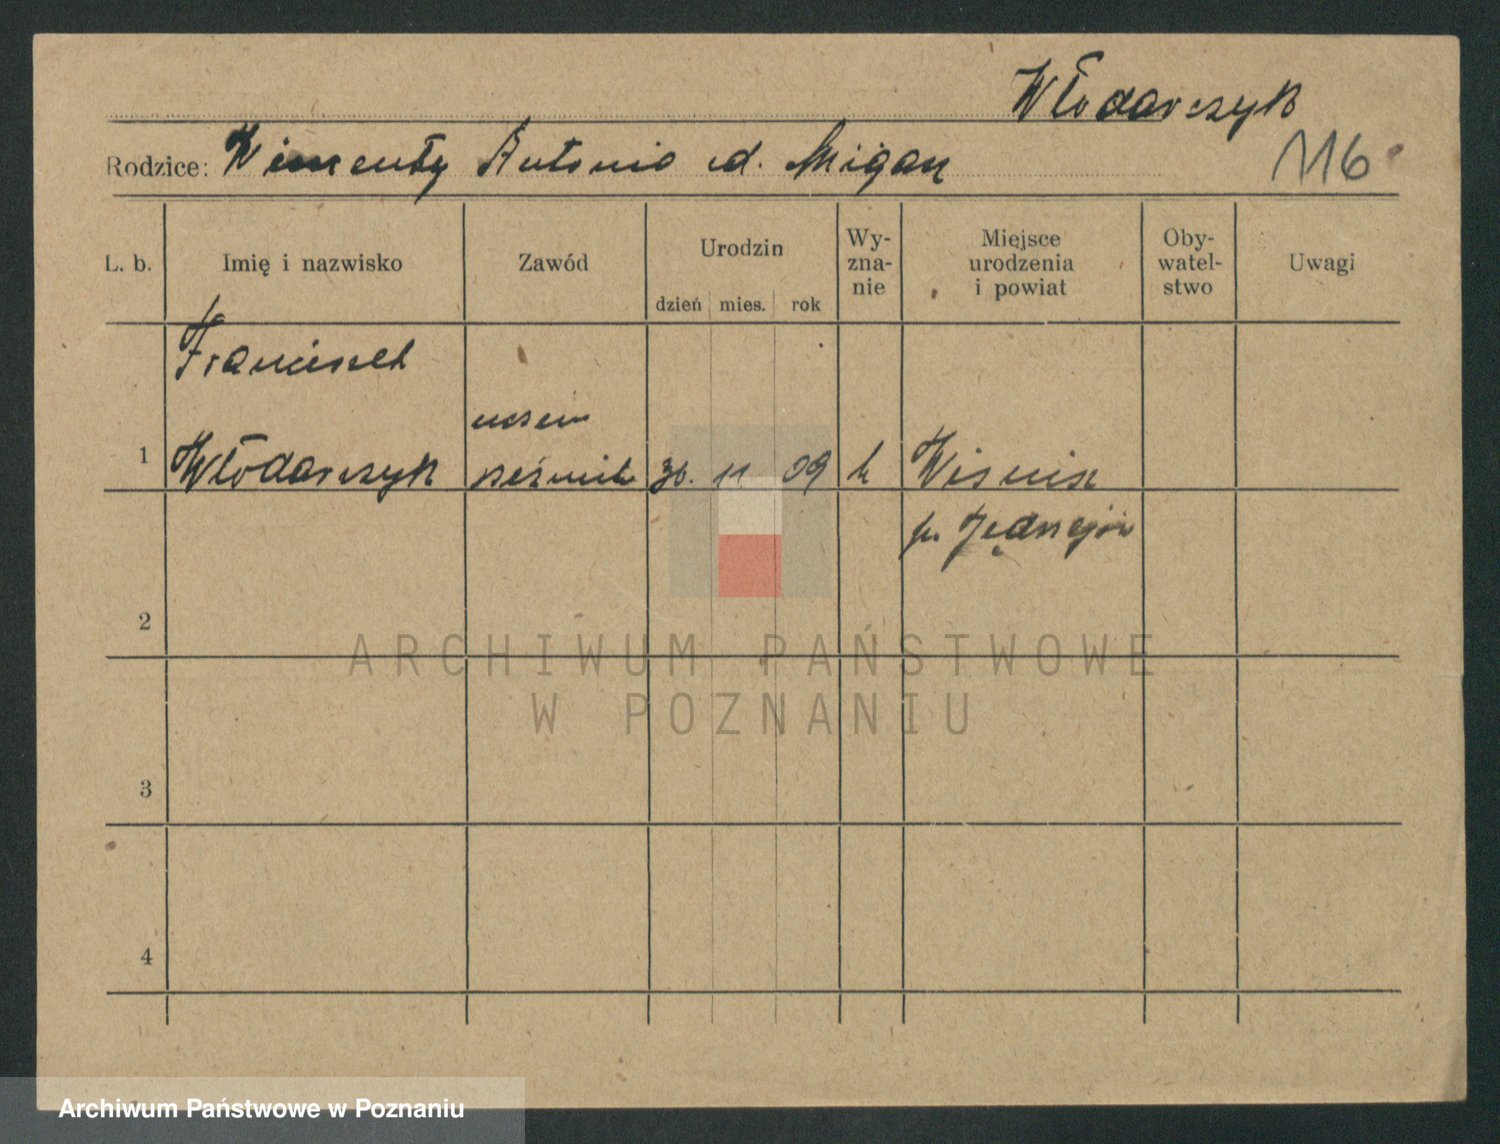 Włodarczyk
Rodzice: Wincenty Antonia d. Migas
116
L. b.
Imię i nazwisko
Zawód
Urodzin
dzień mies. rok
Wy-
zna-
nie
Miejsce
urodzenia
i powiat
Oby-
watel-
stwo
Uwagi
Franciszek
uczeń
1 Włodarczyk rzeźnick 30. 11 09 k
p. Jędrzejów
2
3
4
ARCHIWUM PAŃSTWOWE
W POZNANIU
Archiwum Państwowe w Poznaniu